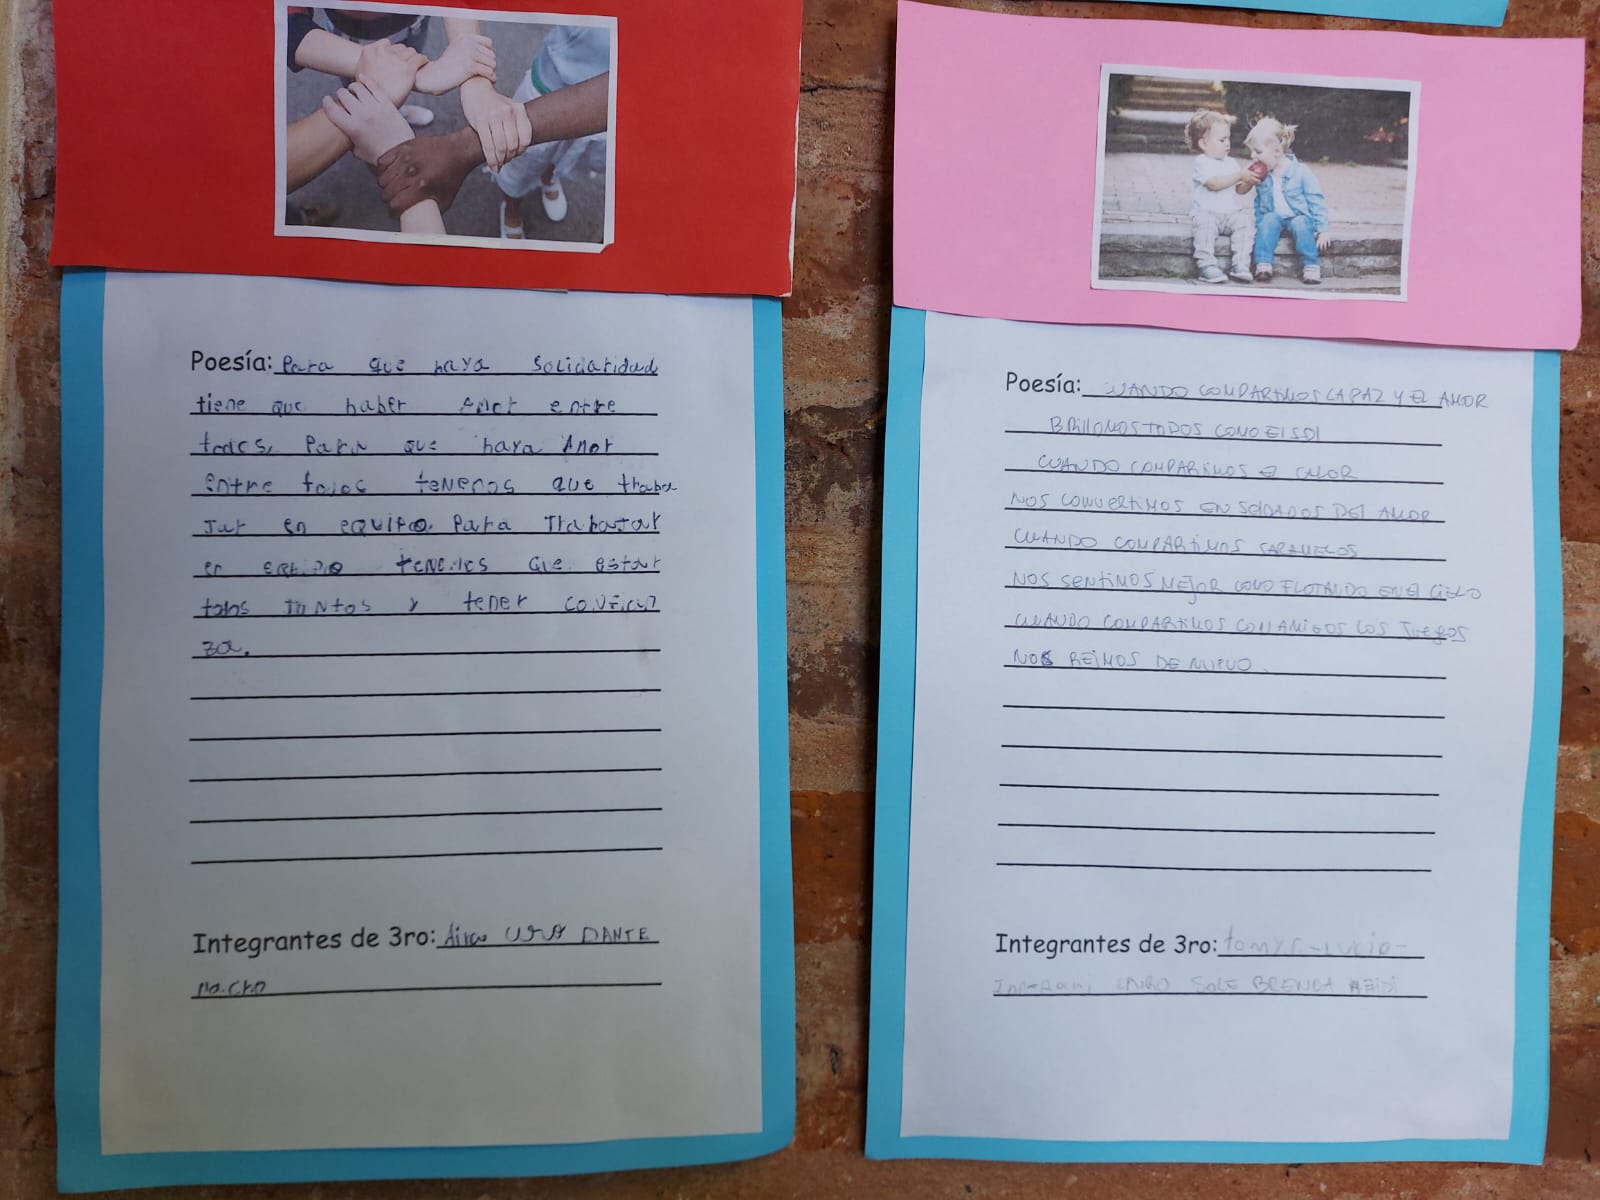 Poesía: Para que haya Solidaridad
tiene que haber Amor entre
todos, Para que haya Amor
Entre todos tenemos que traba
Jar en equipo, Para Trabajar
en equipo tenemos que estar
todos JUNtos y tener confian
za.
Integrantes de 3ro: DANTE
Poesía: CUANDO COMPARTIMOS LA PAZ Y EL AMOR
BRILLAMOS TODOS COMO El SOl
CUANDO COMPARTIMOS El AMOR
NOS CONVERTIMOS EN SOLDADOS DEL AMOR
CUANDO COMPARTIMOS CARAMELOS
NOS SENTIMOS MEJOR COMO FLOTANDO EN El CIELO
CUANDO COMPARTIMOS CON AMIGOS LOS JUEGOS
NOS REIMOS DE NUEVO.
Integrantes de 3ro: Lucia-
SOLE BRENDA HEIDI